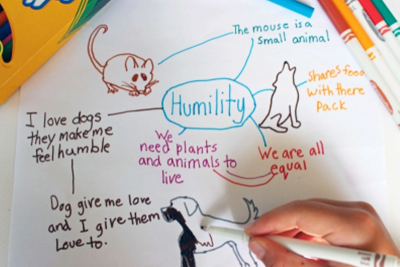 The mouse is a
small animal
Humility
Shares food
with there
pack
I love dogs
they make me
feel humble
We
need plants
and animals to
live
We are all
equal
Dog give me love
and I give them
Love to.